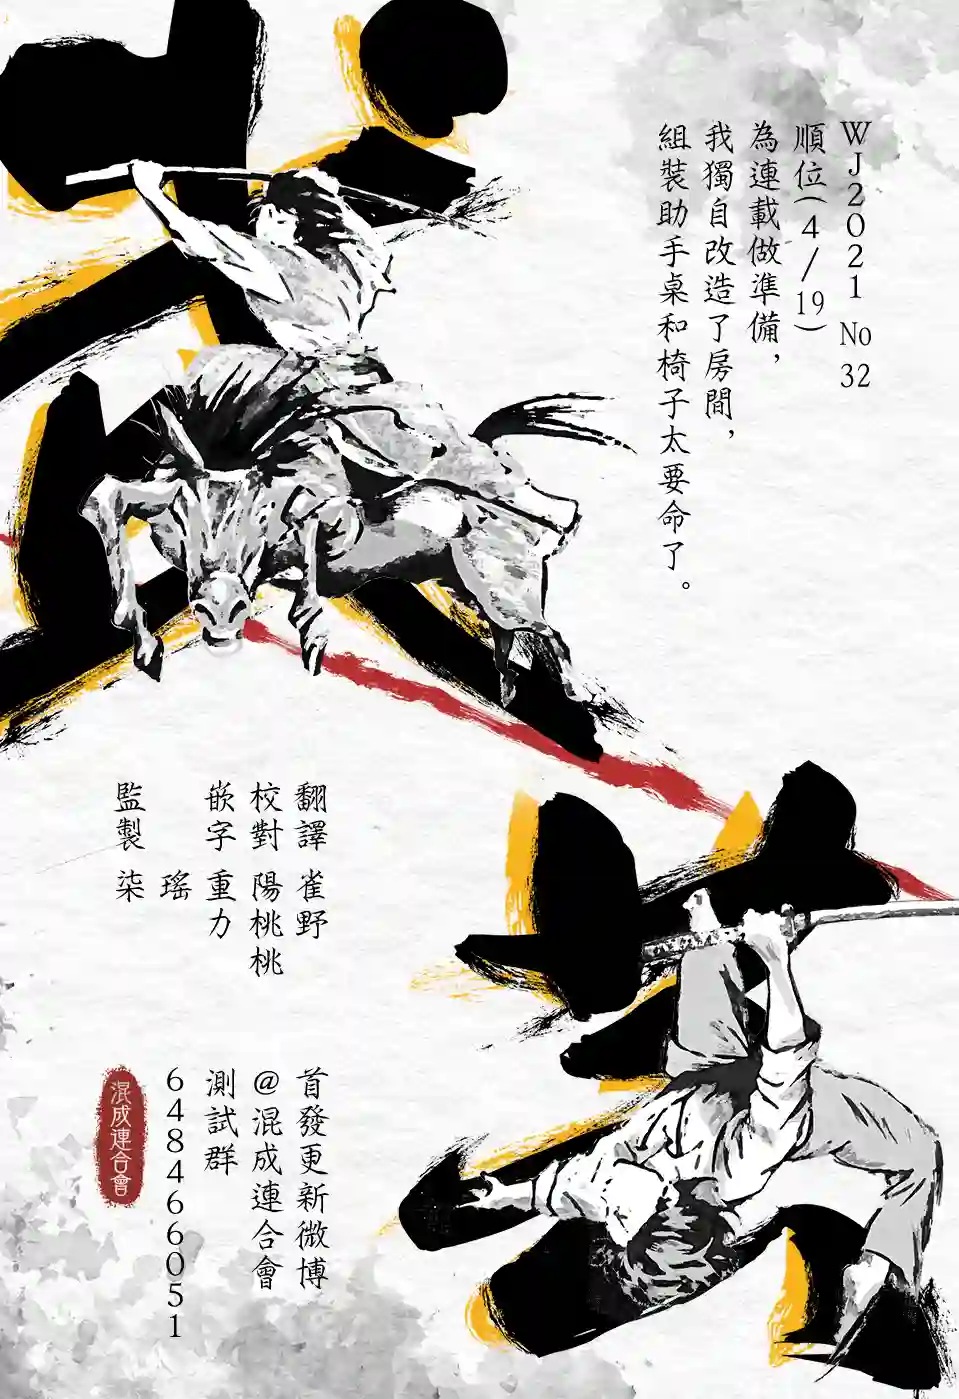 WJ2021 No 32
順位(4/19)
為連載做準備，
我獨自改造了房間，
組裝助手桌和椅子太要命了。
翻譯 雀野
校對 陽桃桃
嵌字 重力
瑤
監製 柒
首發更新微博
@混成連合會
測試群
648466051
混成連合會